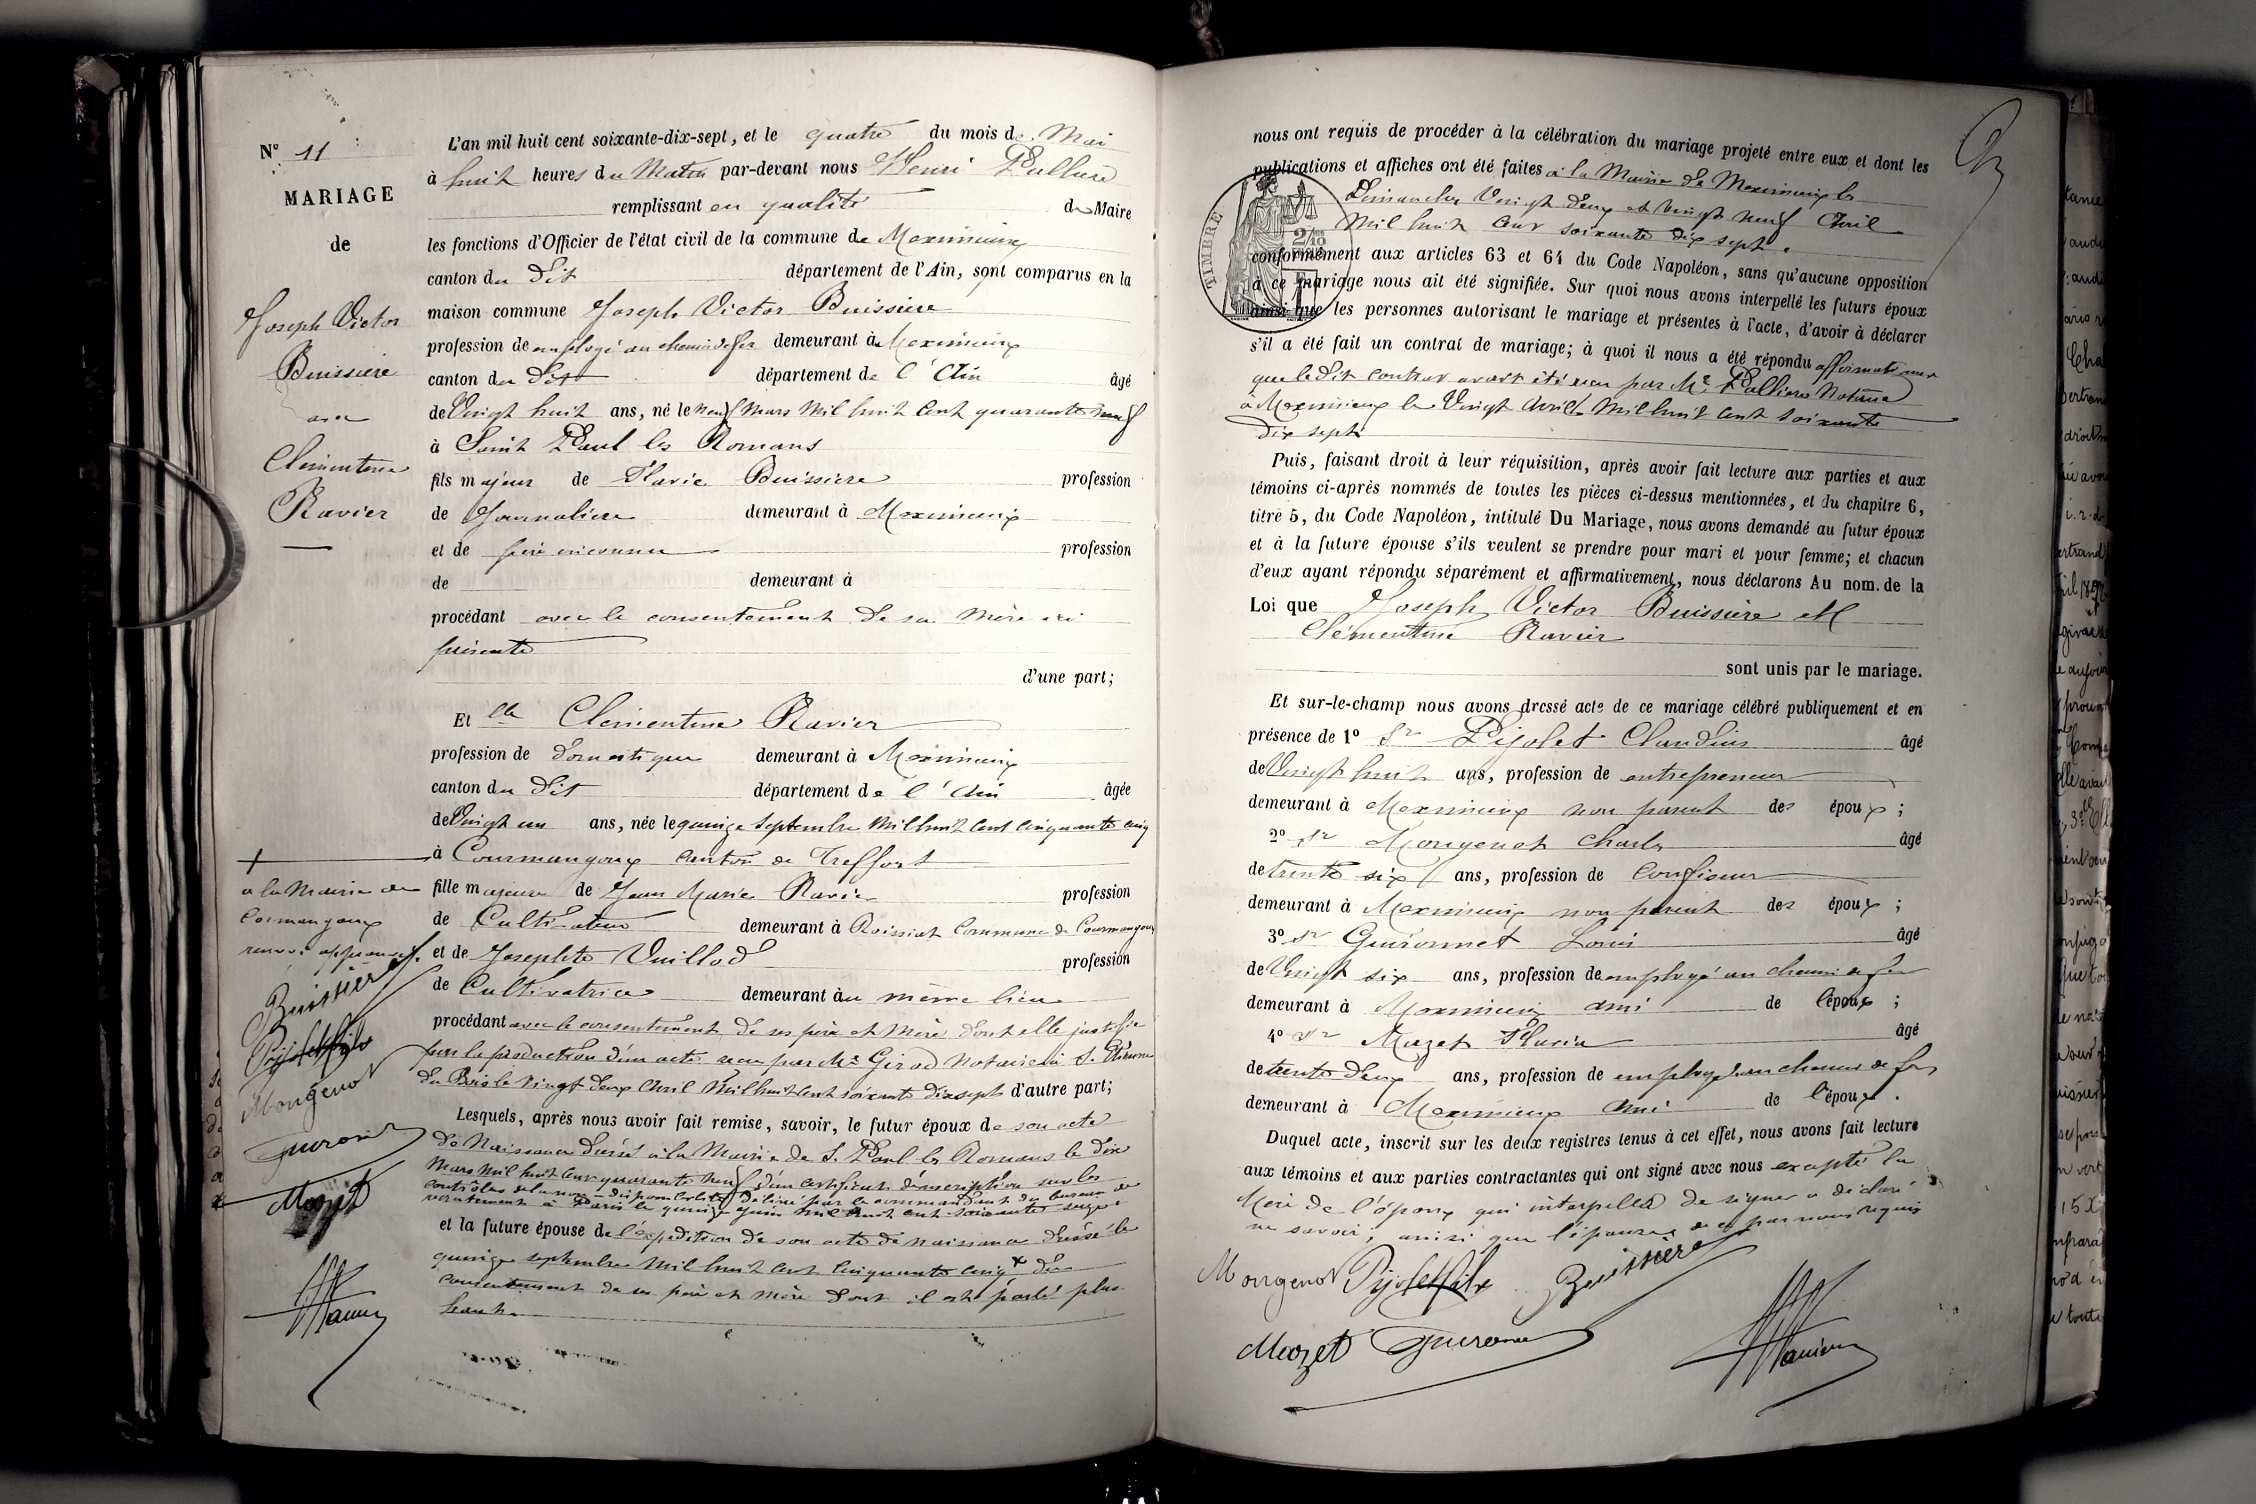 N° 11
MARIAGE
de
Joseph Victor
Buissière
avec
Clémentine
Ravier
L'an mil huit cent soixante-dix-sept, et le quatre du mois de Mai
à huit heures du Matin par-devant nous Henri
remplissant en qualité de Maire
les fonctions d'Officier de l'état civil de la commune de Meximieux
canton du dit département de l'Ain, sont comparus en la
maison commune Joseph Victor Buissière
profession de employé au chemin de fer demeurant à Meximieux
canton du dit département de l'Ain âgé
de Vingt huit ans, né le neuf Mars Mil huit Cent quarante neuf
à Saint Paul les Romans
fils majeur de Marie Buissière profession
de Journalière demeurant à Meximieux
et de père inconnu profession
de demeurant à
procédant avec le consentement de sa mère ici
présente
d'une part;
Et elle Clémentine Ravier
profession de domestique demeurant à Meximieux
canton du dit département de l'Ain âgée
de Vingt un ans, née le quinze Septembre Mil huit Cent Cinquante cinq
à Courmangoux Canton de Treffort
fille majeure de Jean Marie Ravier profession
de Cultivateur demeurant à Roissiat Commune de Courmangoux
et de Josephte Vuillod profession
de Cultivatrice demeurant au même lieu
procédant avec le consentement de ses père et mère dont elle justifie
par la production d'un acte reçu par Me Girod Notaire à St Etienne
du Bois le Vingt deux Avril Mil huit Cent soixante dix sept d'autre part;
Lesquels, après nous avoir fait remise, savoir, le futur époux de son acte
de Naissance dressé à la Mairie de St Paul les Romans le dix
Mars Mil huit Cent quarante neuf d'un certificat d'inscription sur les
contrôles de la non-disponibilité délivré par le commandant du bureau de
recrutement à Paris le quinze Juin Mil huit cent soixante seize
et la future épouse de l'expédition de son acte de naissance dressé le
quinze septembre Mil huit Cent Cinquante cinq x du
consentement de ses père et mère dont il est parlé plus
haut.
à la Mairie de
Cormangoux
renvoi approuvé.
Buissière
Pijolet fils
Mougenot
Guironnet
Mazet
nous ont requis de procéder à la célébration du mariage projeté entre eux et dont les
publications et affiches ont été faites à la Mairie de Meximieux les
Dimanches Vingt deux et Vingt neuf Avril
Mil huit Cent soixante dix sept.
TIMBRE
conformément aux articles 63 et 64 du Code Napoléon, sans qu'aucune opposition
à ce mariage nous ait été signifiée. Sur quoi nous avons interpellé les futurs époux
ainsi que les personnes autorisant le mariage et présentes à l'acte, d'avoir à déclarer
s'il a été fait un contrat de mariage; à quoi il nous a été répondu affirmativement
que le dit contrat avait été reçu par Me Notaire
à Meximieux le Vingt Avril Mil huit Cent soixante
dix sept
Puis, faisant droit à leur réquisition, après avoir fait lecture aux parties et aux
témoins ci-après nommés de toutes les pièces ci-dessus mentionnées, et du chapitre 6,
titre 5, du Code Napoléon, intitulé Du Mariage, nous avons demandé au futur époux
et à la future épouse s'ils veulent se prendre pour mari et pour femme; et chacun
d'eux ayant répondu séparément et affirmativement, nous déclarons Au nom de la
Loi que Joseph Victor Buissière et
Clémentine Ravier
sont unis par le mariage.
Et sur-le-champ nous avons dressé acte de ce mariage célébré publiquement et en
présence de 1° Sr Pijolet Claudius âgé
de Vingt huit ans, profession de entrepreneur
demeurant à Meximieux non parent des époux;
2° Sr Mougenot Charles âgé
de trente six ans, profession de Confiseur
demeurant à Meximieux non parent des époux;
3° Sr Guironnet Louis âgé
de Vingt six ans, profession de employé au chemin de fer
demeurant à Meximieux ami de l'époux;
4° Sr Mazet âgé
de trente deux ans, profession de employé au chemin de fer
demeurant à Meximieux Ami de l'époux.
Duquel acte, inscrit sur les deux registres tenus à cet effet, nous avons fait lecture
aux témoins et aux parties contractantes qui ont signé avec nous excepté la
Mère de l'époux qui interpellée de signer a déclaré
ne savoir, ainsi que l'épouse de ce par nous requis
Mougenot Pijolet fils Buissière
Mazet Guironnet